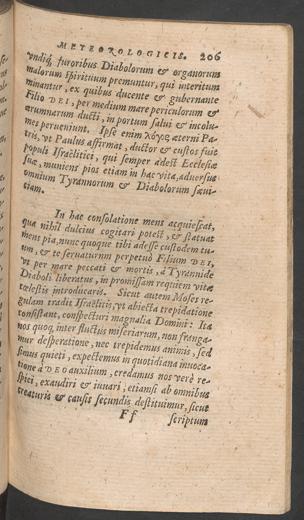 METEOROLOGICIS. 206
vndiq; furoribus Diabolorum & organorum
malorum spirituum premuntur, qui interitum
minantur, ex quibus ducente & gubernante
Filio DEI, per medium mare periculorum &
ærumnarum ducti, in portum salui & incolu-
mes perueniunt. Ipse enim λόγος æterni Pa-
tris, vt Paulus affirmat, ductor & custos fuit
populi Israëlitici, qui semper adest Ecclesiæ
suæ, muniens pios etiam in hac vita, aduersus
omnium Tyrannorum & Diabolorum sæui-
ciam.
In hac consolatione mens acquiescat,
qua nihil dulcius cogitari potest, & statuat
mens pia, nunc quoque tibi adesse custodem tu-
um, & te seruaturum perpetuò Filium DEI,
vt per mare peccati & mortis, à Tyrannide
Diaboli liberatus, in promissam requiem vitæ
cœlestis introducaris. Sicut autem Moses re-
gulam tradit Israëlitis, vt abiecta trepidatione
consistant, conspecturi magnalia Domini: Ita
nos quoq; inter fluctus miseriarum, non franga-
mur desperatione, nec trepidemus animis, sed
simus quieti, expectemus in quotidiana inuoca-
tione à DEO auxilium, credamus nos verè re-
spici, exaudiri & iuuari, etiamsi ab omnibus
creaturis & causis secundis destituimur, sicut
Ff scriptum